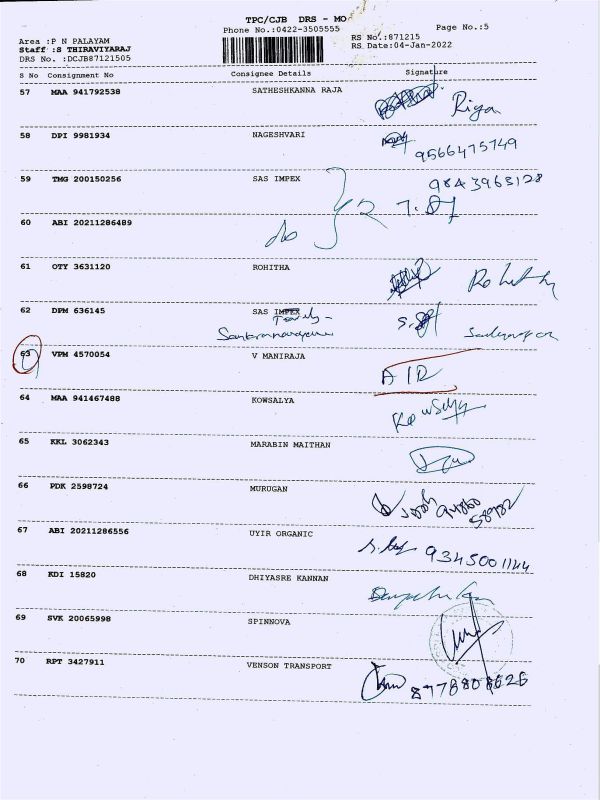 TPC/CJB DRS - MO
Phone No.:0422-3505555
Page No.:5
Area :P N PALAYAM
RS No.:871215
Staff :S THIRAVIYARAJ
RS Date:04-Jan-2022
DRS No. :DCJB87121505
S No Consignment No Consignee Details Signature
57 MAA 941792538 SATHESHKANNA RAJA
Riya
58 DPI 9981934 NAGESHVARI
9566475749
59 TMG 200150256 SAS IMPEX
9843963128
60 ABI 20211286489
do
61 OTY 3631120 ROHITHA
62 DPM 636145 SAS IMPEX
63 VPM 4570054 V MANIRAJA
64 MAA 941467488 KOWSALYA
Kowsalya
65 KKL 3062343 MARABIN MAITHAN
66 PDK 2598724 MURUGAN
67 ABI 20211286556 UYIR ORGANIC
9345001144
68 KDI 15820 DHIYASRE KANNAN
69 SVK 20065998 SPINNOVA
70 RPT 3427911 VENSON TRANSPORT
8778808626